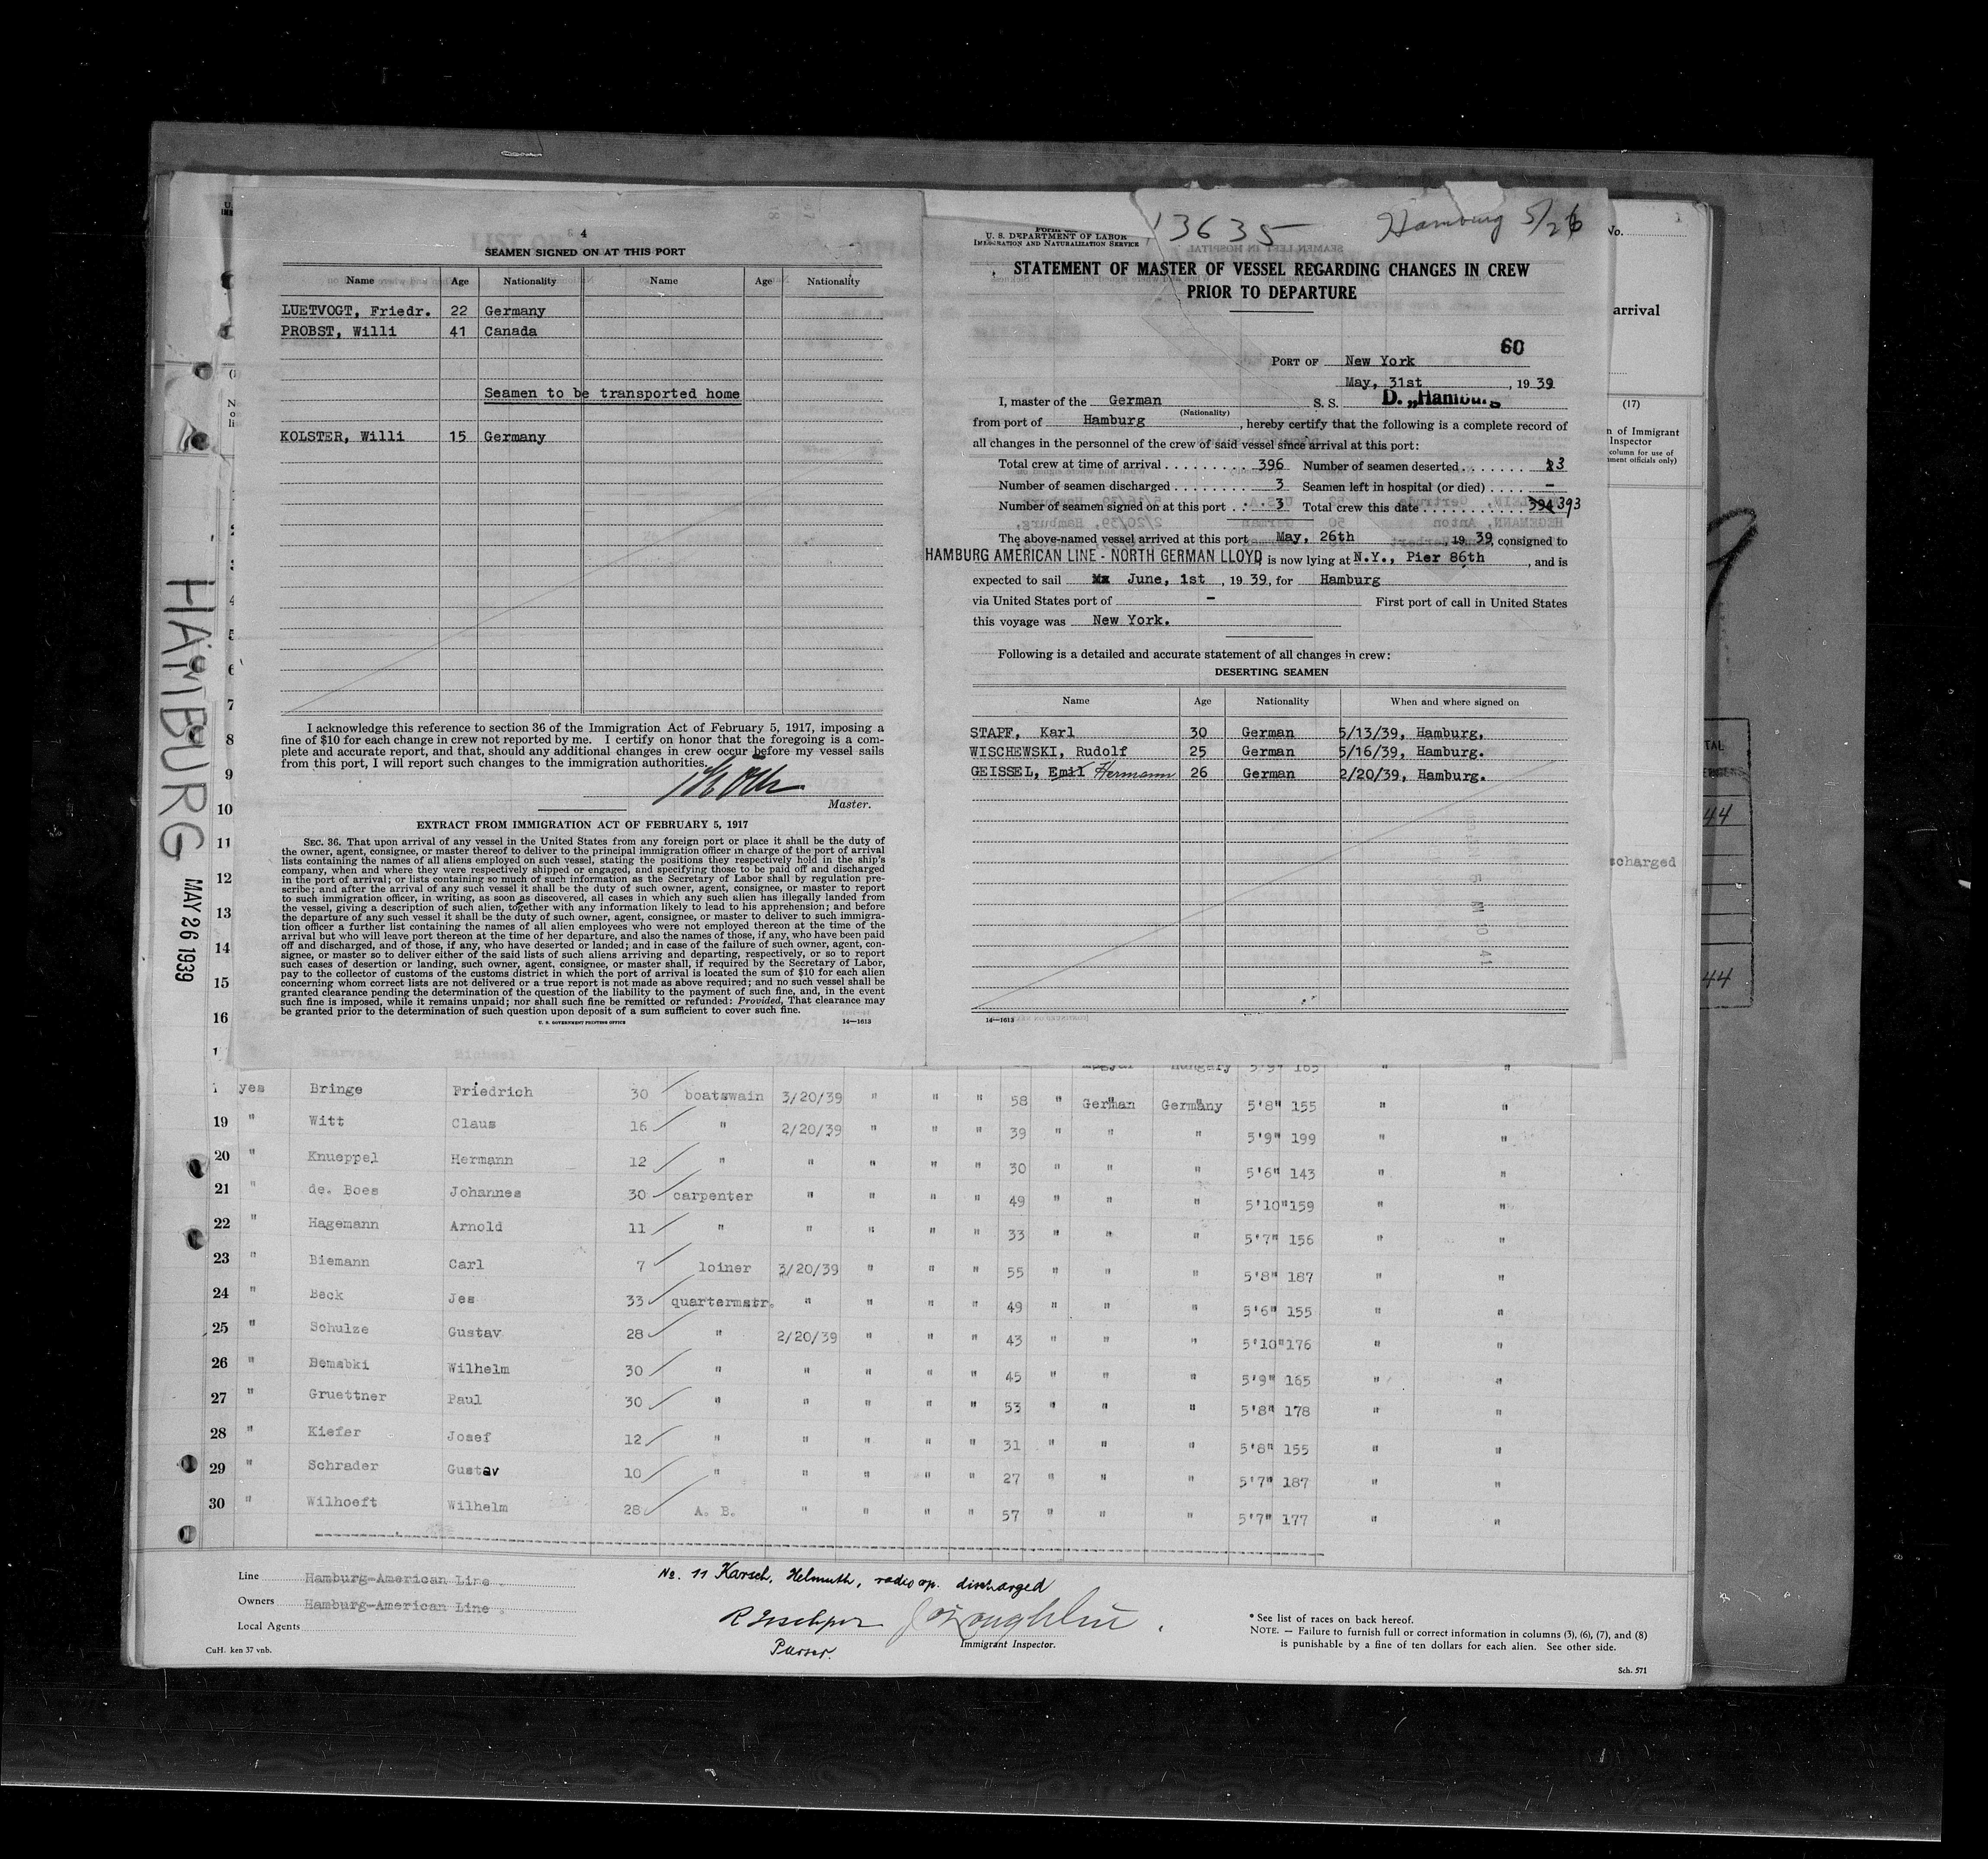 4
SEAMEN SIGNED ON AT THIS PORT
Name Age Nationality Name Age Nationality
LUETVOGT, Friedr. 22 Germany
PROBST, Willi 41 Canada
Seamen to be transported home
KOLSTER, Willi 15 Germany
I acknowledge this reference to section 36 of the Immigration Act of February 5, 1917, imposing a
fine of $10 for each change in crew not reported by me. I certify on honor that the foregoing is a com-
plete and accurate report, and that, should any additional changes in crew occur before my vessel sails
from this port, I will report such changes to the immigration authorities.
Master.
EXTRACT FROM IMMIGRATION ACT OF FEBRUARY 5, 1917
SEC. 36. That upon arrival of any vessel in the United States from any foreign port or place it shall be the duty of
the owner, agent, consignee, or master thereof to deliver to the principal immigration officer in charge of the port of arrival
lists containing the names of all aliens employed on such vessel, stating the positions they respectively hold in the ship's
company, when and where they were respectively shipped or engaged, and specifying those to be paid off and discharged
in the port of arrival; or lists containing so much of such information as the Secretary of Labor shall by regulation pre-
scribe; and after the arrival of any such vessel it shall be the duty of such owner, agent, consignee, or master to report
to such immigration officer, in writing, as soon as discovered, all cases in which any such alien has illegally landed from
the vessel, giving a description of such alien, together with any information likely to lead to his apprehension; and before
the departure of any such vessel it shall be the duty of such owner, agent, consignee, or master to deliver to such immigra-
tion officer a further list containing the names of all alien employees who were not employed thereon at the time of the
arrival but who will leave port thereon at the time of her departure, and also the names of those, if any, who have been paid
off and discharged, and of those, if any, who have deserted or landed; and in case of the failure of such owner, agent, con-
signee, or master so to deliver either of the said lists of such aliens arriving and departing, respectively, or so to report
such cases of desertion or landing, such owner, agent, consignee, or master shall, if required by the Secretary of Labor,
pay to the collector of customs of the customs district in which the port of arrival is located the sum of $10 for each alien
concerning whom correct lists are not delivered or a true report is not made as above required; and no such vessel shall be
granted clearance pending the determination of the question of the liability to the payment of such fine, and, in the event
such fine is imposed, while it remains unpaid; nor shall such fine be remitted or refunded: Provided, That clearance may
be granted prior to the determination of such question upon deposit of a sum sufficient to cover such fine.
U. S. GOVERNMENT PRINTING OFFICE 14—1613
13635 Hamburg 5/26
U. S. DEPARTMENT OF LABOR
IMMIGRATION AND NATURALIZATION SERVICE
STATEMENT OF MASTER OF VESSEL REGARDING CHANGES IN CREW
PRIOR TO DEPARTURE
60
PORT OF New York
May, 31st, 1939
I, master of the German S. S. D. „Hamburg
(Nationality)
from port of Hamburg, hereby certify that the following is a complete record of
all changes in the personnel of the crew of said vessel since arrival at this port:
Total crew at time of arrival 396 Number of seamen deserted 3
Number of seamen discharged 3 Seamen left in hospital (or died) –
Number of seamen signed on at this port 3 Total crew this date 394 393
The above-named vessel arrived at this port May, 26th, 1939, consigned to
HAMBURG AMERICAN LINE - NORTH GERMAN LLOYD is now lying at N.Y., Pier 86th, and is
expected to sail June, 1st, 1939, for Hamburg
via United States port of – First port of call in United States
this voyage was New York.
Following is a detailed and accurate statement of all changes in crew:
DESERTING SEAMEN
Name Age Nationality When and where signed on
STAPF, Karl 30 German 5/13/39, Hamburg,
WISCHEWSKI, Rudolf 25 German 5/16/39, Hamburg.
GEISSEL, Emil Hermann 26 German 2/20/39, Hamburg.
14—1613
No.
arrival
(17)
n of Immigrant
Inspector
column for use of
ment officials only)
scharged
TAL
44
44
HAMBURG MAY 26 1939
4
5
6
7
8
9
10
11
12
13
14
15
16
Magyar Hungary 5'9" 165 " "
yes Bringe Friedrich 30 boatswain 3/20/39 " " " 58 " German Germany 5'8" 155 " "
19 " Witt Claus 16 " 2/20/39 " " " 39 " " " 5'9" 199 " "
20 " Knueppel Hermann 12 " " " " " 30 " " " 5'6" 143 " "
21 " de. Boes Johannes 30 carpenter " " " " 49 " " " 5'10" 159 " "
22 " Hagemann Arnold 11 " " " " " 33 " " " 5'7" 156 " "
23 " Biemann Carl 7 loiner 3/20/39 " " " 55 " " " 5'8" 187 " "
24 " Beck Jes 33 quartermstr. " " " " 49 " " " 5'6" 155 " "
25 " Schulze Gustav 28 " 2/20/39 " " " 43 " " " 5'10" 176 " "
26 " Bemabki Wilhelm 30 " " " " " 45 " " " 5'9" 165 " "
27 " Gruettner Paul 30 " " " " " 53 " " " 5'8" 178 " "
28 " Kiefer Josef 12 " " " " " 31 " " " 5'8" 155 " "
29 " Schrader Gustav 10 " " " " " 27 " " " 5'7" 187 " "
30 " Wilhoeft Wilhelm 28 A. B. " " " " 57 " " " 5'7" 177 " "
Line Hamburg-American Line.
Owners Hamburg-American Line.
Local Agents
CuH. ken 37 vnb.
No. 11 Karsch, Helmuth, radio op. discharged
Purser.
Immigrant Inspector.
* See list of races on back hereof.
NOTE. — Failure to furnish full or correct information in columns (3), (6), (7), and (8)
is punishable by a fine of ten dollars for each alien. See other side.
Sch. 571